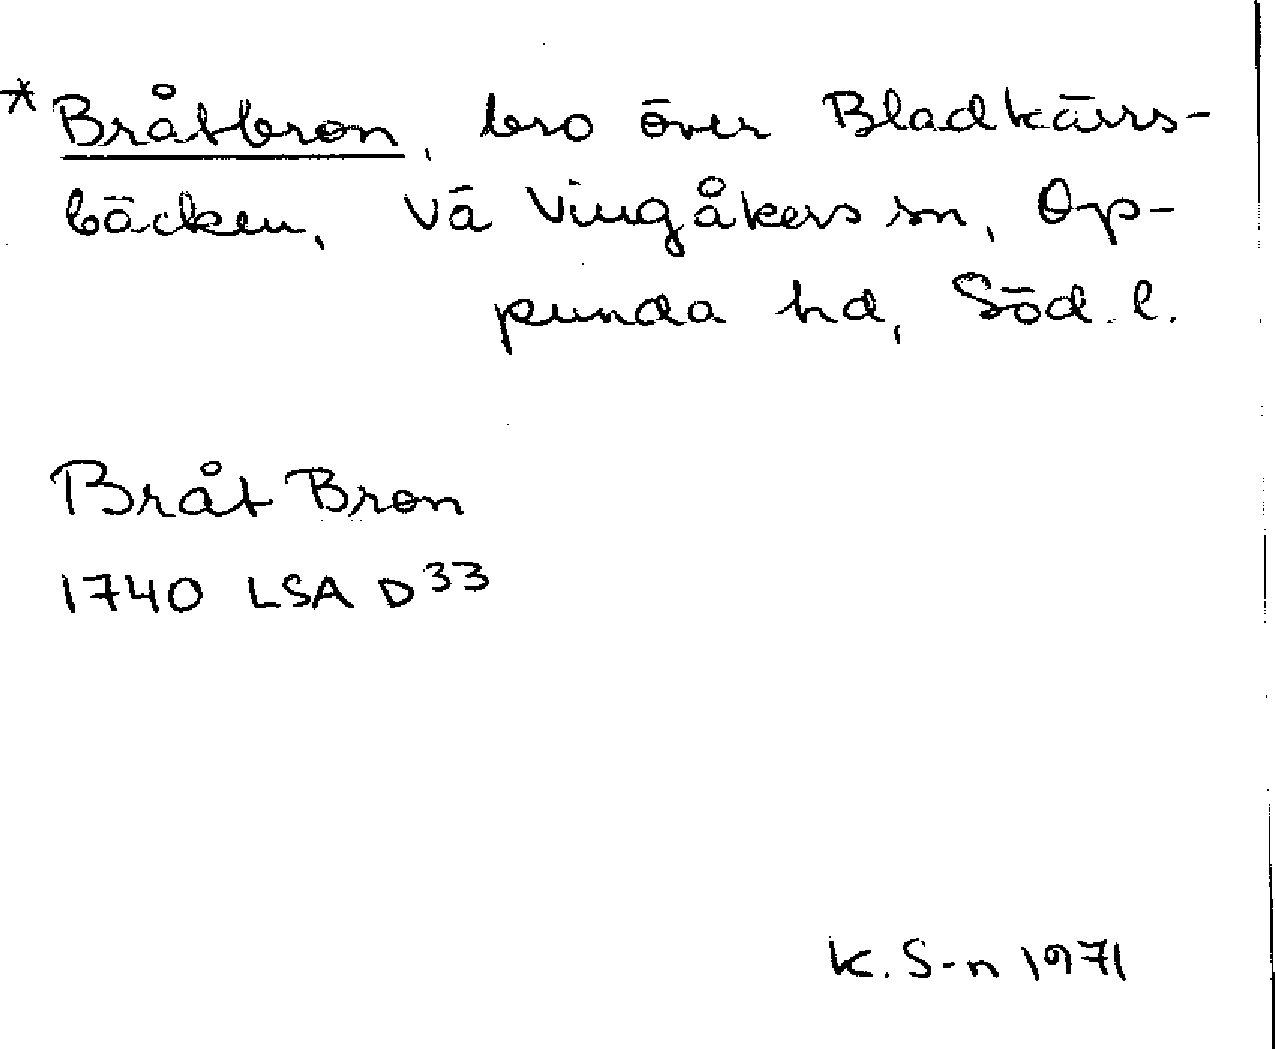 * Bråtbron, bro över Bladkärrs-
bäcken, Vä Vingåkers sn, Op-
punda hd, Söd. l.
Bråt Bron
1740 LSA D33
K. S-n 1971